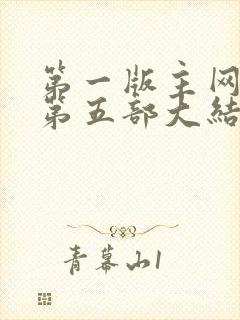 第一版主网
第五部大结
青幕山1